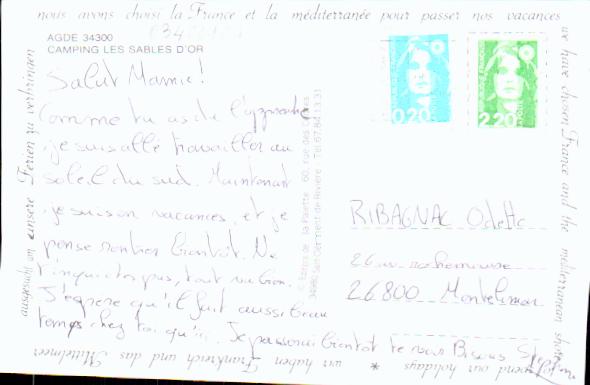 nous avons choisi la France et la méditerranée pour passer nos vacances
AGDE 34300
CAMPING LES SABLES D'OR
Salut Mamie!
Comme tu as dû l'apprendre
je suis allé travailler au
soleil du sud. Maintenant
je suis en vacances, et je
pense rentrer bientôt. Ne
t'inquiètes pas, tout va bien.
J'espère qu'il fait aussi beau
temps chez toi qu'ici. Je passerai bientôt te voir Bisous
0,20
2,20
RIBAGNAC Odette
26
26.800 Montélimar
we have chosen France and the mediterranean shore
spend our holidays *
wir haben Frankreich und das Mittelmeer
ausgesucht um unsere Ferien zu verbringen